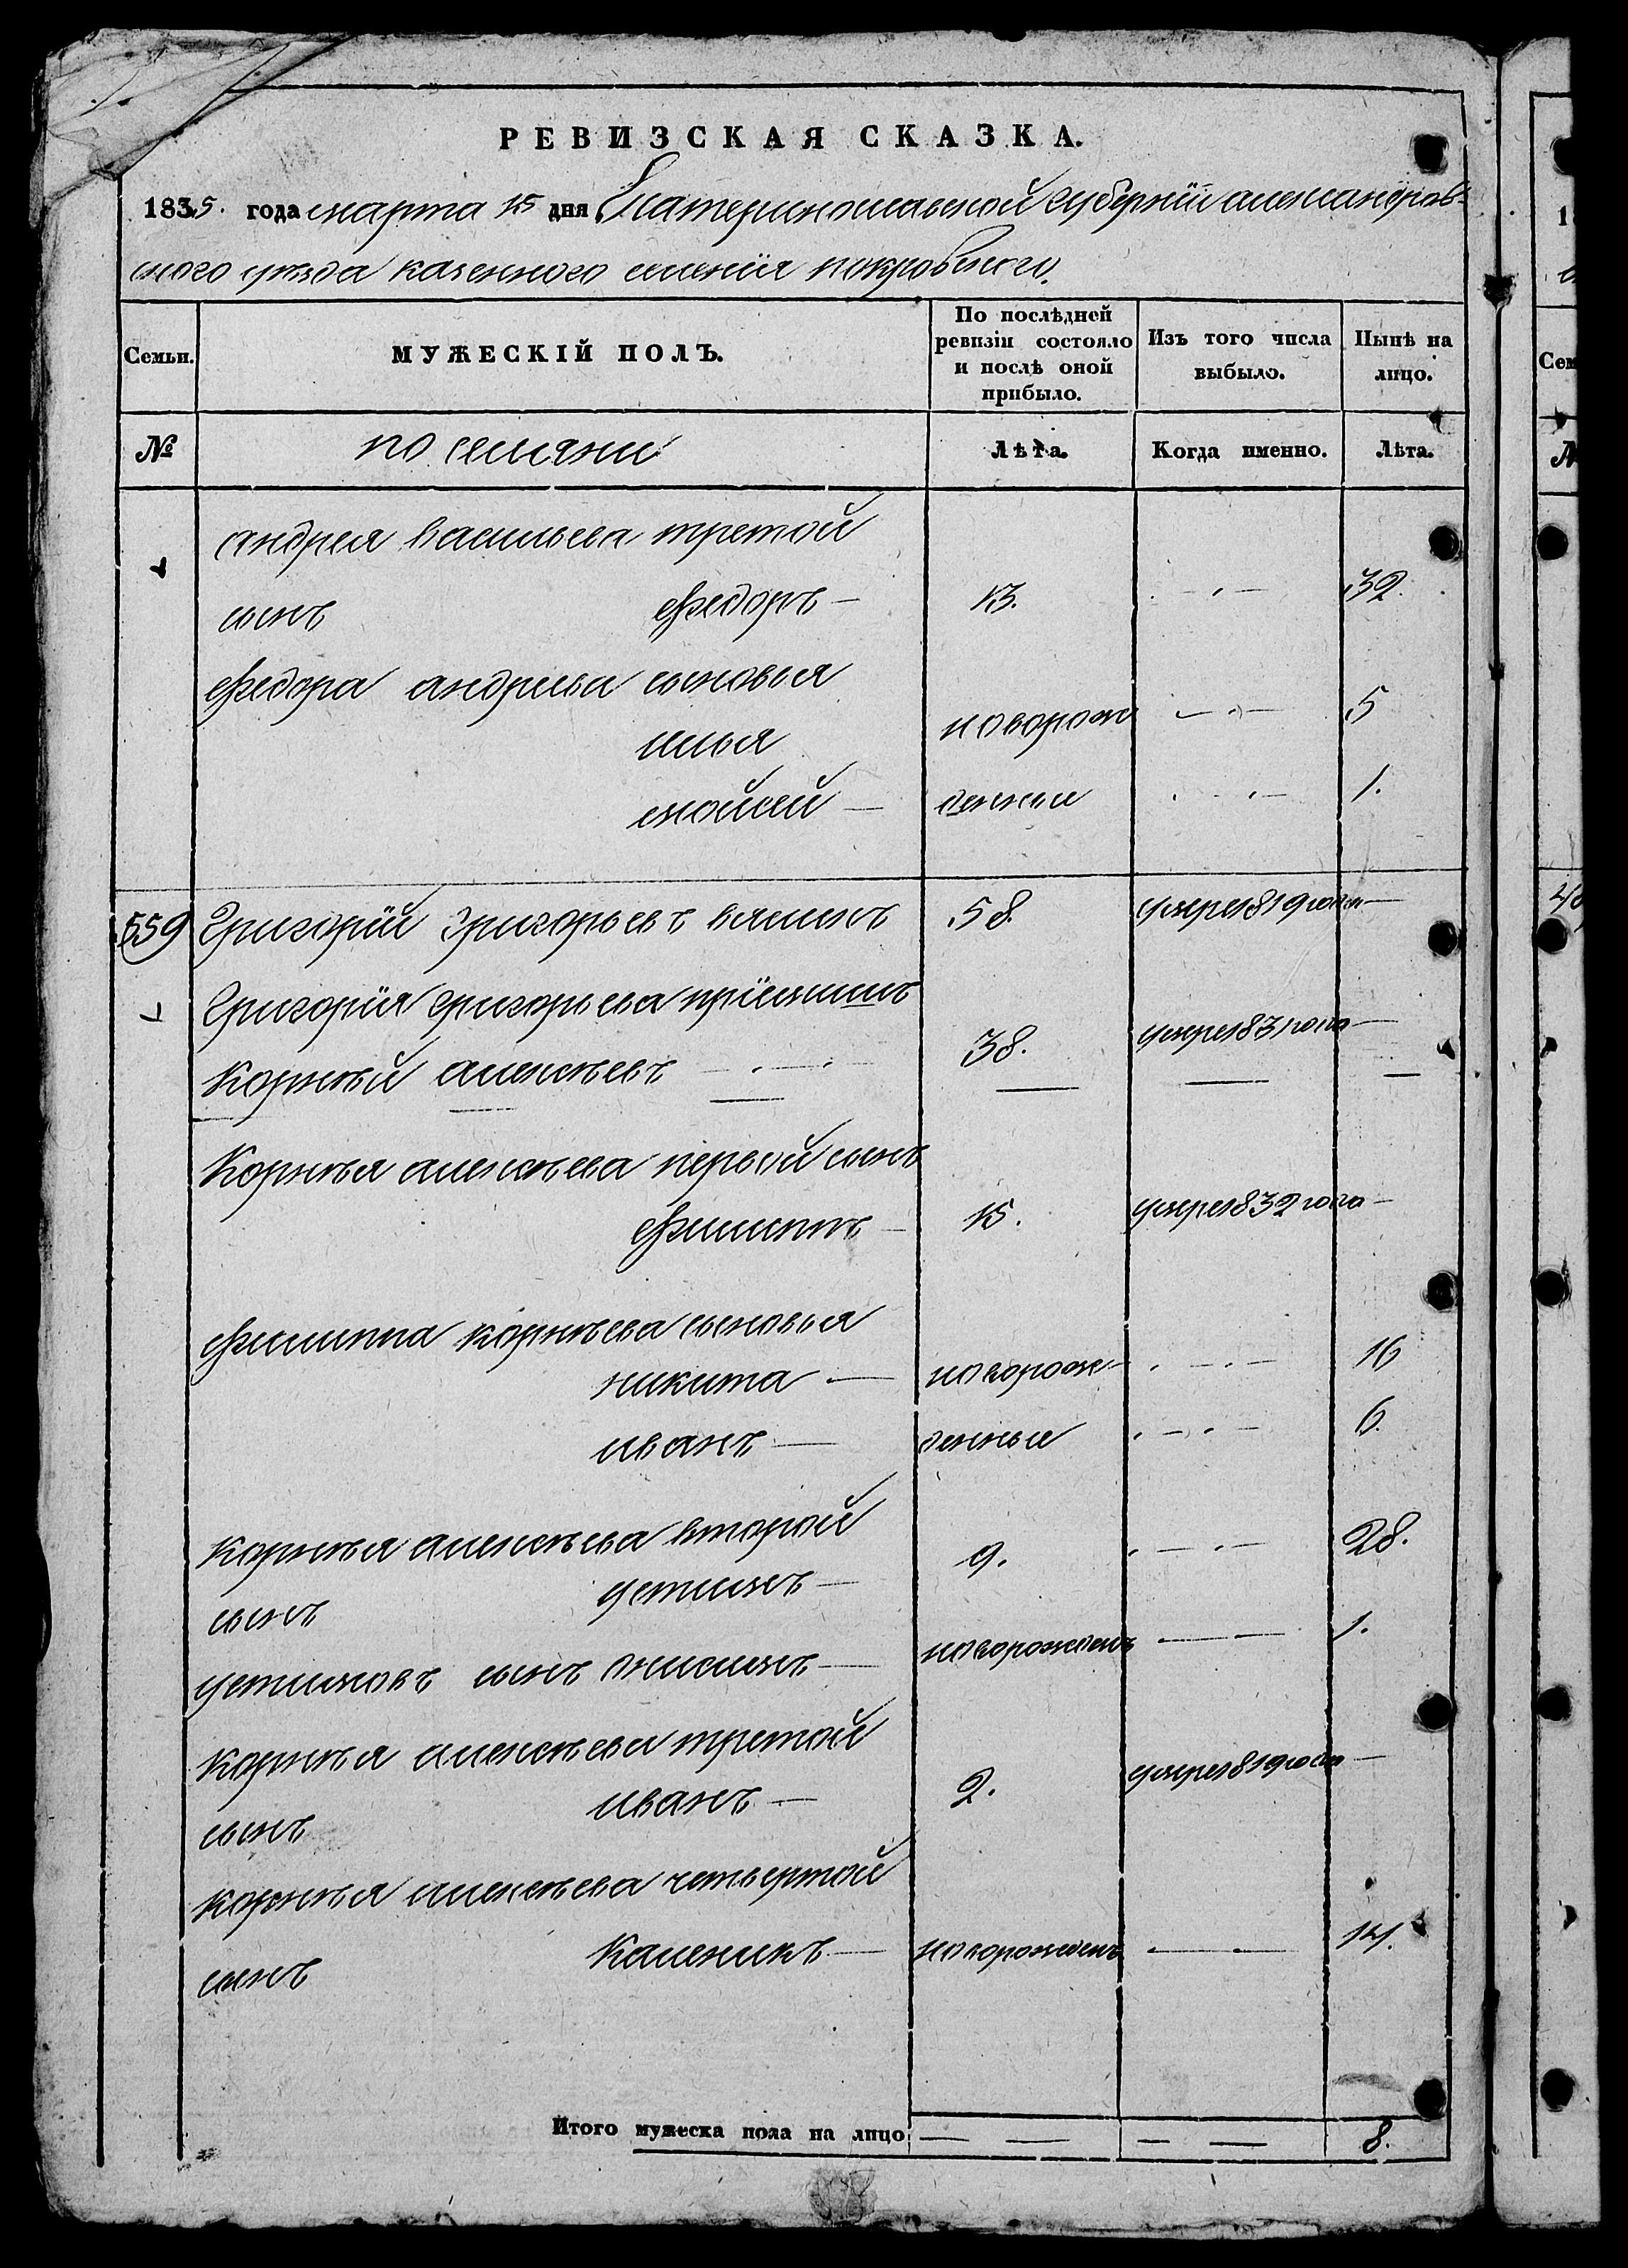 РЕВИЗСКАЯ СКАЗКА.
1835. года марта 15 дня Екатеринославской губернїи александров-
ского уѣзда казенного селенїя покровского.
Семьи.
МУЖЕСКІЙ ПОЛЪ.
По послѣдней ревизіи состояло и послѣ оной прибыло.
Изъ того числа выбыло.
Нынѣ на лицо.
№
по семяни
Лѣта.
Когда именно.
Лѣта.
андрея васильева третой
сынъ федоръ — 13. 32.
федора андреева сыновья
илья новорож 5
мойсей — денные 1.
559 Григорїй григорьевъ 58. умеръ 1819 года —
Григорїя григорьева прїемишъ
Корнѣй алексѣевъ 38. умеръ 1831 года —
Корнѣя алексѣева первой сынъ
филиппъ 15. умеръ 1832 года —
филиппа корнѣева сыновья
никита — новорож- 16
иванъ — денные 6.
корнѣя алексѣева второй
сынъ устимъ — 9. 28.
устимовъ сынъ онисимъ — новорожденъ 1.
корнѣя алексѣева третой
сынъ иванъ — 2. умеръ 1819 года —
корнѣя алексѣева четвертой
сынъ Каленикъ — новорожденъ 14.
Итого мужеска пола на лицо 8.